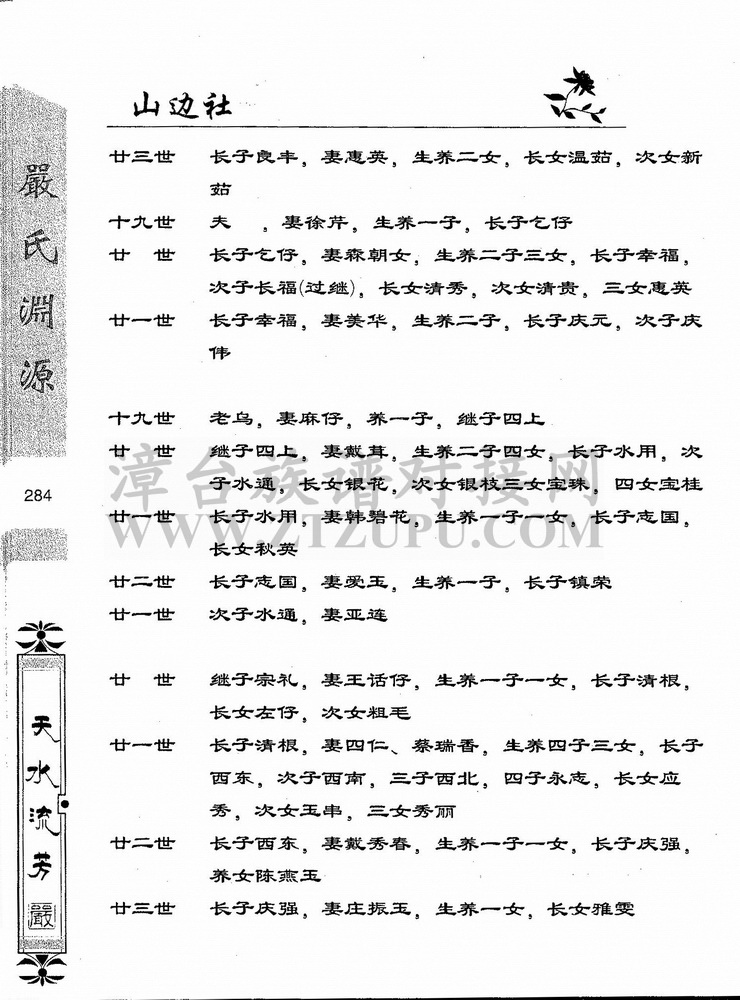 山边社
廿三世 长子良丰，妻惠英，生养二女，长女温茹，次女新
茹
十九世 夫 ，妻徐芹，生养一子，长子乞仔
廿 世 长子乞仔，妻森朝女，生养二子三女，长子幸福，
次子长福(过继)，长女清秀，次女清贵，三女惠英
廿一世 长子幸福，妻美华，生养二子，长子庆元，次子庆
伟
十九世 老乌，妻麻仔，养一子，继子四上
廿 世 继子四上，妻戴茸，生养二子四女，长子水用，次
子水通，长女银花，次女银枝三女宝珠，四女宝桂
廿一世 长子水用，妻韩碧花，生养一子一女，长子志国，
长女秋英
廿二世 长子志国，妻爱玉，生养一子，长子镇荣
廿一世 次子水通，妻亚连
廿 世 继子宗礼，妻王话仔，生养一子一女，长子清根，
长女左仔，次女粗毛
廿一世 长子清根，妻四仁、蔡瑞香，生养四子三女，长子
西东，次子西南，三子西北，四子永志，长女应
秀，次女玉串，三女秀丽
廿二世 长子西东，妻戴秀春，生养一子一女，长子庆强，
养女陈燕玉
廿三世 长子庆强，妻庄振玉，生养一女，长女雅雯
嚴氏淵源
284
天水流芳
嚴
漳台族谱对接网
WWW.ZTZUPU.COM